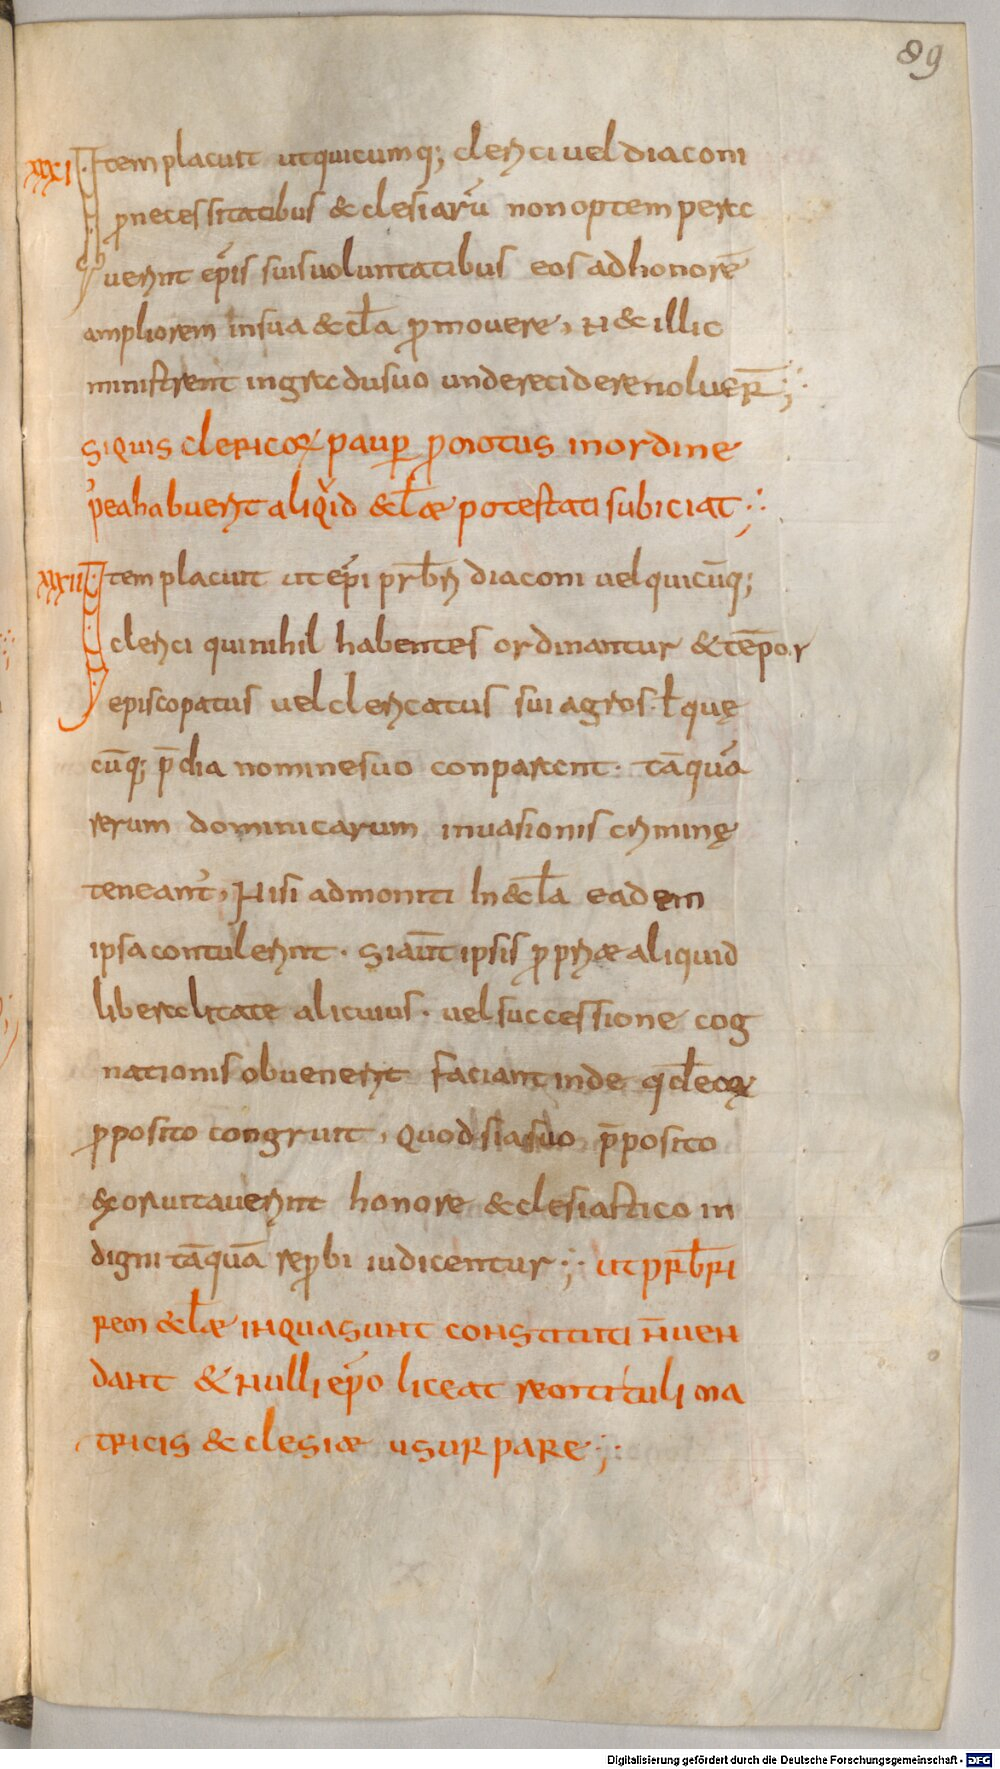 89
xxxi Item placuit ut quicumq; clerici vel diaconi
ꝓnecessitatibus &clesiarū non optempera
verint ep̄is suis voluntatibus eos ad honorē
ampliorem in sua &cl̄a ꝓmovere, N & illic
ministrent in gradu suo unde recidere noluer̄;
Siquis clericoꝝ paup̱ ꝓmotus in ordine
pea habuerit aliqid &cl̄ae potestati subiciat;
xxxii Item placuit ut ep̄i prb̄ri diaconi vel quicūq;
clerici qui nihil habentes ordinantur & tēpor
episcopatus vel clericatus sui agros ł quę
cūq; p̄dia nomine suo conparent. tāquā
rerum dominicarum invasionis criminę
teneant̄, Nisi admoniti in &cl̄a eadem
ipsa contulerint. Si aūt ipsis ꝓpriae aliquid
liberalitate alicuius. vel successione cog
nationis obvenerit faciant inde q̄d eoꝝ
ꝓposito congruit, Quod si a suo p̄posito
&orvitaverint honore &clesiastico in
digni tāquā reꝓbi iudicentur; ut prb̄ri
rem &cl̄ae in qua sunt constituti n̄ ven
dant & nulli ep̄o liceat rem tituli ma
tricis &clesiae usurpare;
Digitalisierung gefördert durch die Deutsche Forschungsgemeinschaft - DFG